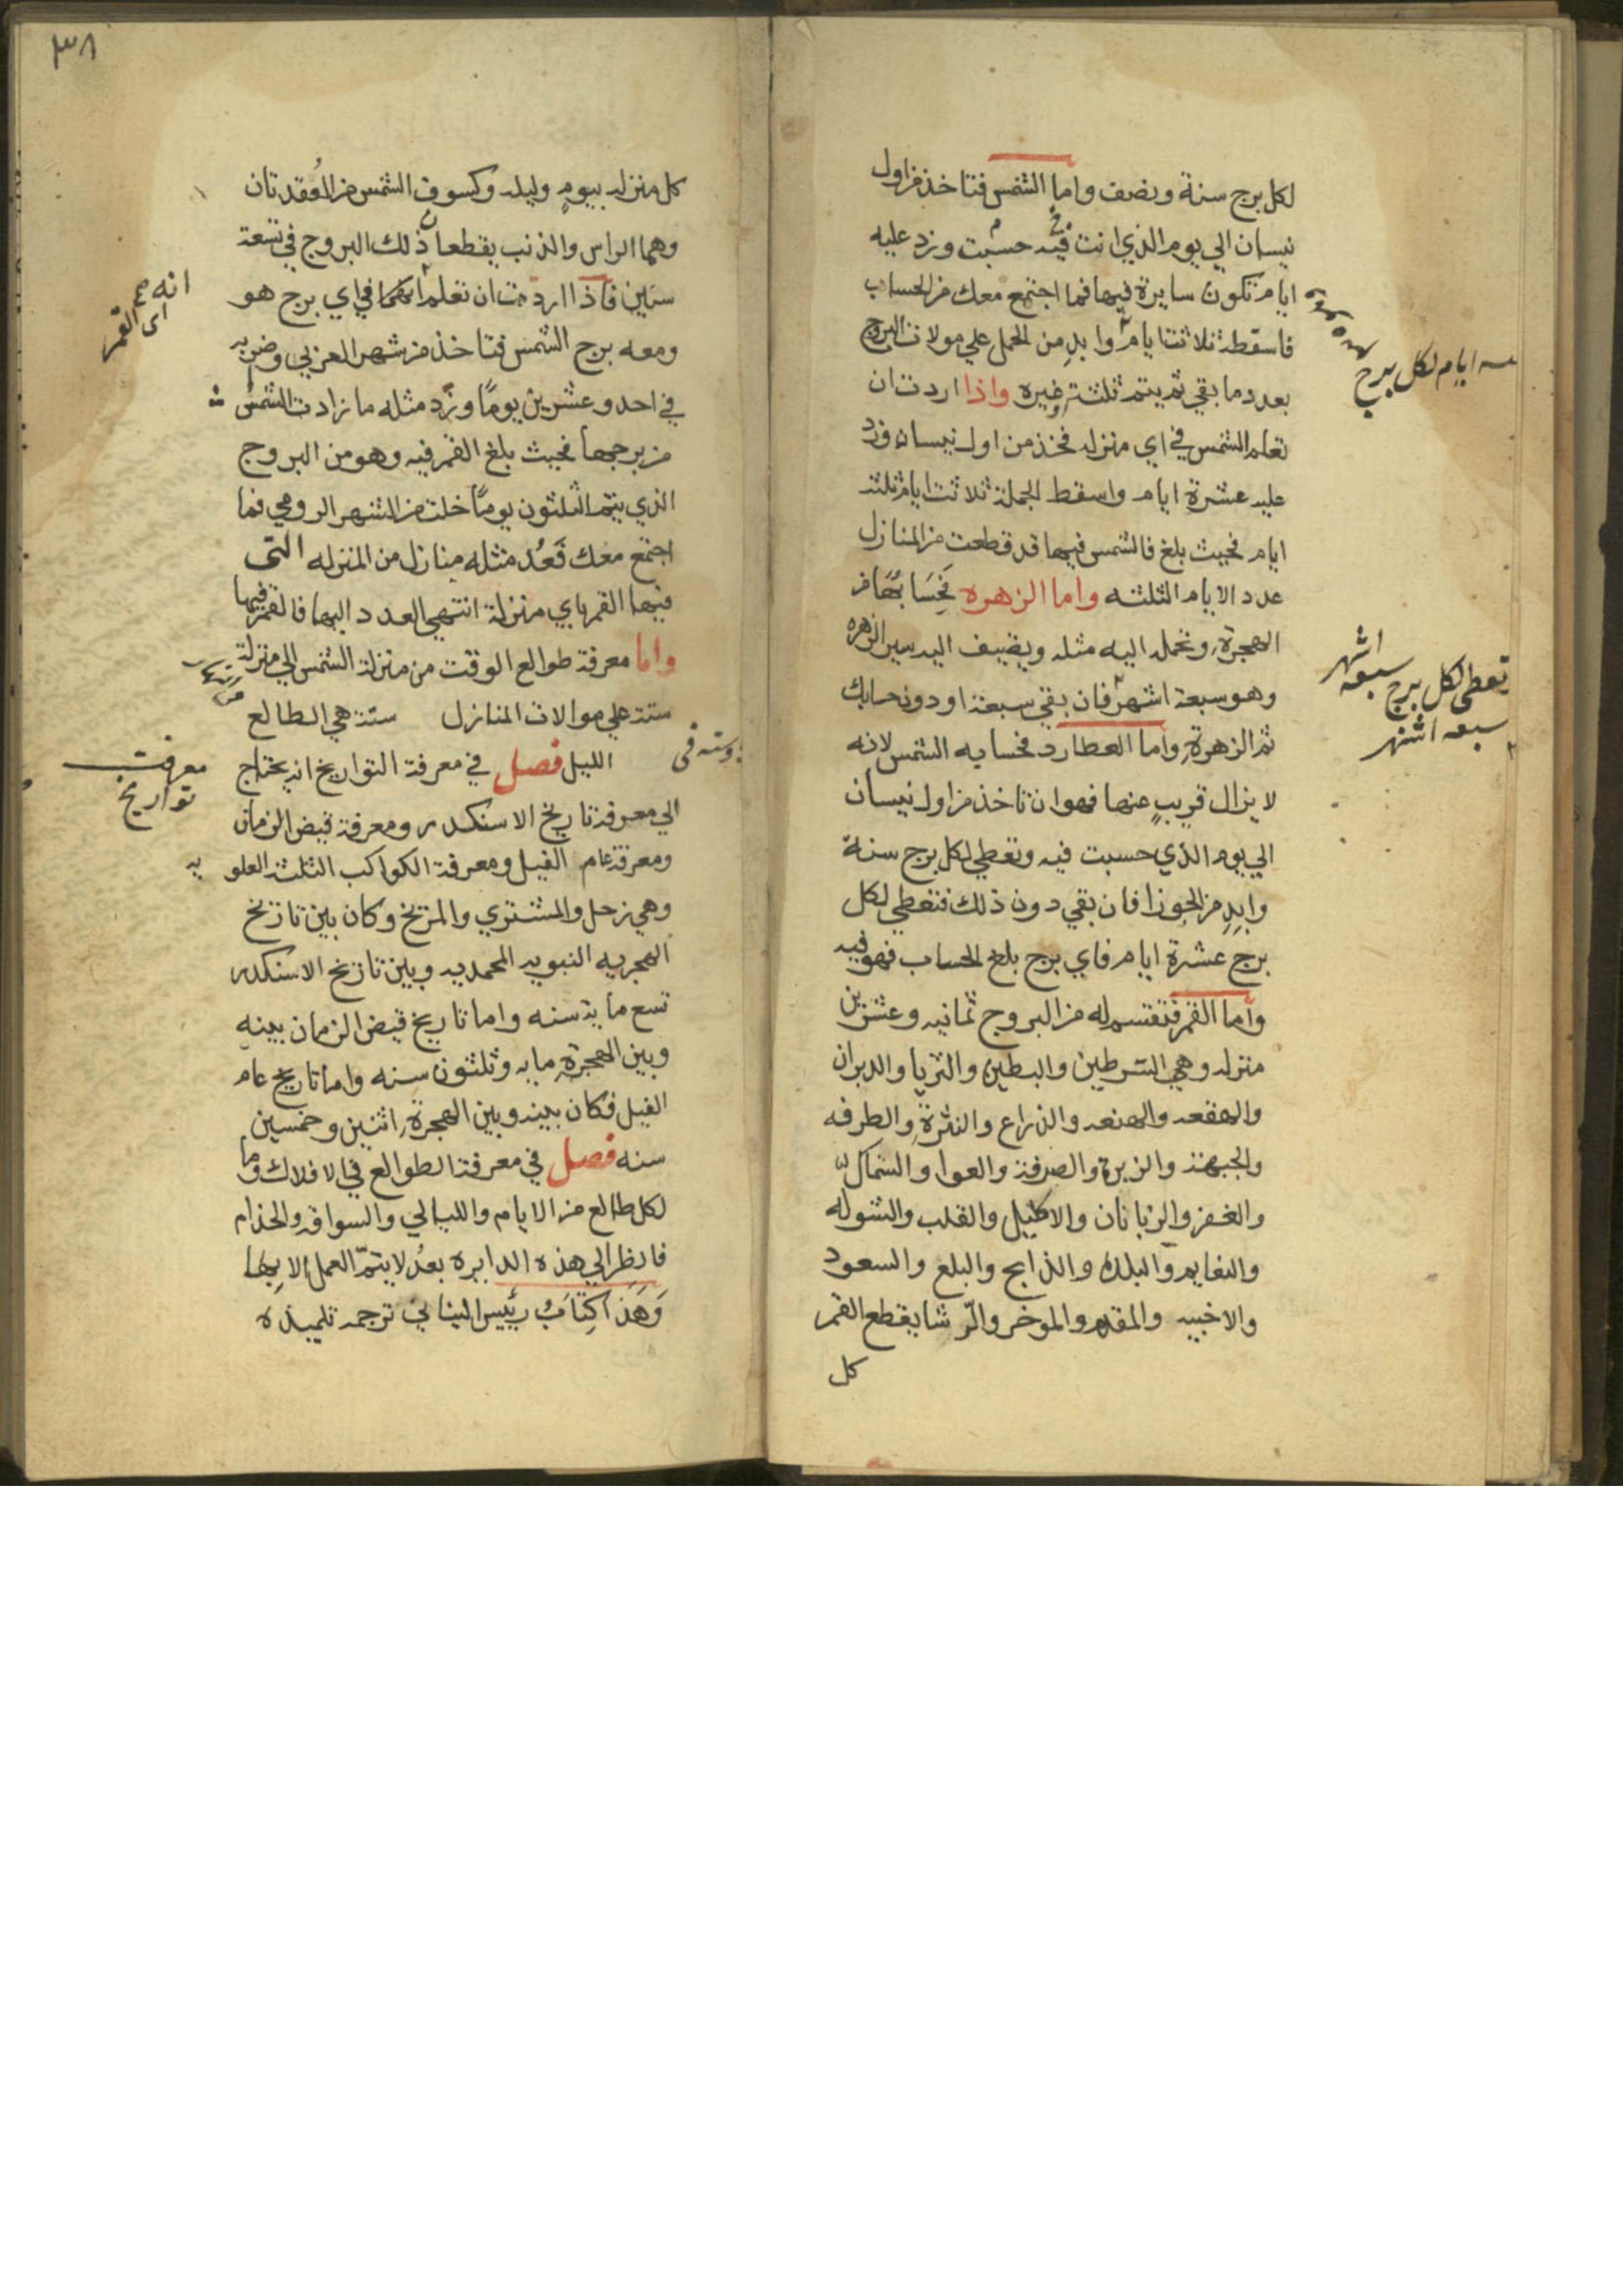 لكل برج سنة ونصف واما الشمس فتاخذ من اول
نيسان الي يوم الذي انت فيه حسبت وزد عليه
ايام تكون سايرة فيها فما اجتمع معك من الحساب
فاسقطه ثلاثت ايام وابد من الحمل علي مولات البروج
بعدد ما بقي ثم يتم ثلثة وغيره واذا اردت ان
تعلم الشمس في اي منزله فخذ من اول نيسان وزد
عليه عشرة ايام واسقط الجملة ثلاثت ايام ثلثه
ايام فحيث بلغ فالشمس فيها قد قطعت من المنازل
عدد الايام الثلثه واما الزهره فحسابها من
الهجرة وتحمل اليه مثله ويضيف اليه سير الزهره
وهو سبعة اشهر فان بقي سبعة او دونه حسابك
ثم الزهرة واما العطارد فحسابه الشمس لانه
لا يزال قريب عنها فهو ان تاخذ من اول نيسان
الي يوم الذي حسبت فيه وتعطي لكل برج سنة
وابد من الجوزا فان بقي دون ذلك فتعطي لكل
برج عشرة ايام فاي برج بلغ الحساب فهو فيه
واما القمر فتقسم له من البروج ثمانيه وعشرين
منزله وهي الشرطين والبطين والثريا والدبران
والهقعه والهنعه والذراع والنثرة والطرفه
والجبهة والزبرة والصرفة والعوا والسماك
والغفر والزبانان والاكليل والقلب والشوله
والنعايم والبلده والذابح والبلع والسعود
والاخبيه والمقدم والموخر والرشا يقطع القمر
كل
ايام لكل برج
تعطي لكل برج سبعه اشهر
سبعه اشهر
٣٨
كل منزله بيوم وليله وكسوف الشمس من العقدتان
وهما الراس والذنب يقطعان ذلك البروج في تسعة
سنين فاذا اردت ان تعلم القمر في اي برج هو
ومعه برج الشمس فتاخذ من شهر العربي وضربه
في احد وعشرين يوما وزد مثله ما زادت الشمس
من برجها فحيث بلغ القمر فيه وهو من البروج
الذي يتم الثلثون يوما خلت من الشهر الرومي فما
اجتمع معك فعد مثله منازل من المنزله التى
فيها القمر باي منزلة انتهي العدد اليها فالقمر فيها
واما معرفة طوالع الوقت من منزلة الشمس الي منزلة
ستة علي موالات المنازل ستة هي الطالع
الليل فصل في معرفة التواريخ انه يحتاج
الي معرفة تاريخ الاسنكدر ومعرفة قيض الزمان
ومعرفة عام الفيل ومعرفة الكواكب الثلثة العلويه
وهي زحل والمشتري والمريخ وكان بين تاريخ
الهجريه النبويه المحمديه وبين تاريخ الاسنكدر
تسع ماية سنه واما تاريخ قيض الزمان بينه
وبين الهجرة مايه وثلثون سنه واما تاريخ عام
الفيل فكان بينه وبين الهجرة اثنين وخمسين
سنه فصل في معرفة الطوالع في الافلاك وما
لكل طالع من الايام والليالي والسواقه والخدام
فانظر الي هذه الدايره بعد لا يتم العمل الا بها
وهذا كتاب رئيس اليناني ترجمه تلميذه
انه
اى القمر
وسته فى
معرفت
تواريخ